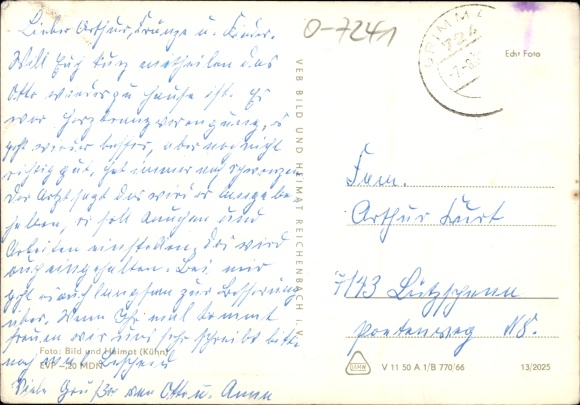 Lieber Arthur, u. Kinder.
Will Euch kurz mitteilen das
Otto wieder zu hause ist. Es
war Herzkranzverengung, es
geht wieder besser, aber noch nicht
richtig gut. hat immer noch schmerzen
Der Arzt sagt das wird er lange be-
halten, er soll Rauchen und
Arbeiten einstellen, das wird
auch eingehalten. Bei mir
geht es auch langsam zur Besserung
über. Wenn Ihr mal kommt
freuen wir uns sehr schreibt bitte
Bescheid
Viele Grüße von Otto u. Anna
Foto: Bild und Heimat (Kühn)
EVP –,20 MDN
VEB BILD UND HEIMAT REICHENBACH I. V.
O-7241
GRIMMA
724
Echt Foto
Fam.
Arthur Kurt
7143 Lützschena
weg 18.
V 11 50 A 1/B 770/66
13/2025